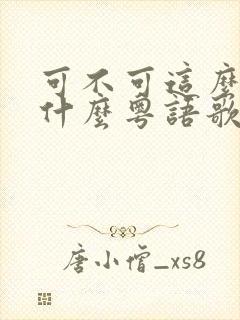 可不可這麼
什麼粵語歌
唐小僧_xs8